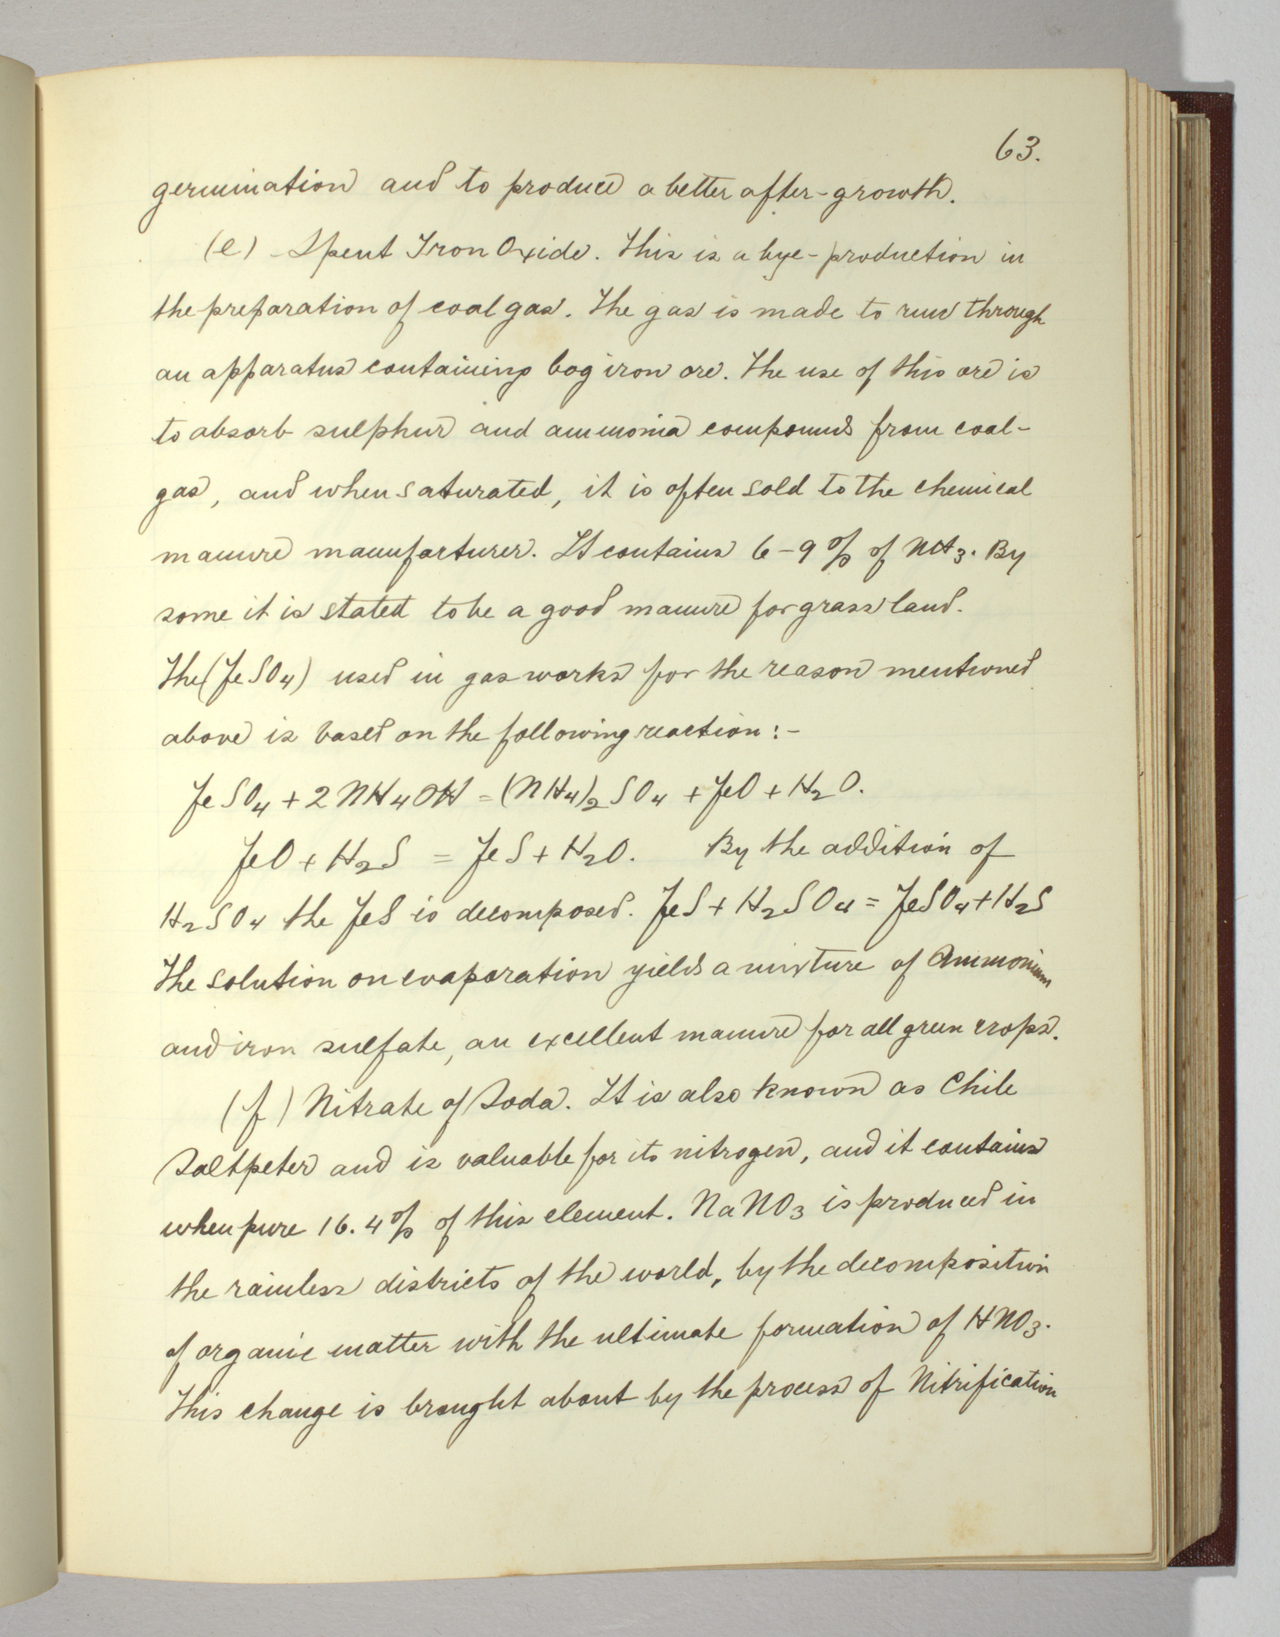 63.
germination and to produce a better after-growth.
(e) Spent Iron Oxide. This is a bye-production in
the preparation of coal gas. The gas is made to run through
an apparatus containing bog iron ore. The use of this ore is
to absorb sulphur and ammonia compounds from coal-
gas, and when saturated, it is often sold to the chemical
manure manufacturer. It contains 6-9% of NH₃. By
some it is stated to be a good manure for grass land.
The (FeSO₄) used in gas works for the reason mentioned
above is based on the following reaction:-
FeSO₄ + 2NH₄OH = (NH₄)₂SO₄ + FeO + H₂O.
FeO + H₂S = FeS + H₂O. By the addition of
H₂SO₄ the FeS is decomposed. FeS + H₂SO₄ = FeSO₄ + H₂S
The solution on evaporation yields a mixture of Ammonium
and iron sulfate, an excellent manure for all green crops.
(f) Nitrate of Soda. It is also known as Chile
Saltpeter and is valuable for its nitrogen, and it contains
when pure 16.4% of this element. NaNO₃ is produced in
the rainless districts of the world, by the decomposition
of organic matter with the ultimate formation of HNO₃.
This change is brought about by the process of Nitrification